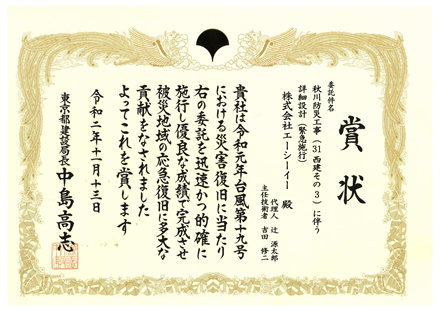 賞状
委託件名
秋川防災工事(31西建その3)に伴う
詳細設計(緊急施行)
株式会社エーシーイー 殿
代理人 辻 源太郎
主任技術者 吉田 修二
貴社は令和元年台風第十九号
における災害復旧に当たり
右の委託を迅速かつ的確に
施行し優良な成績で完成させ
被災地域の応急復旧に多大な
貢献をなされました
よってこれを賞します
令和二年十一月十三日
東京都建設局長 中島高志